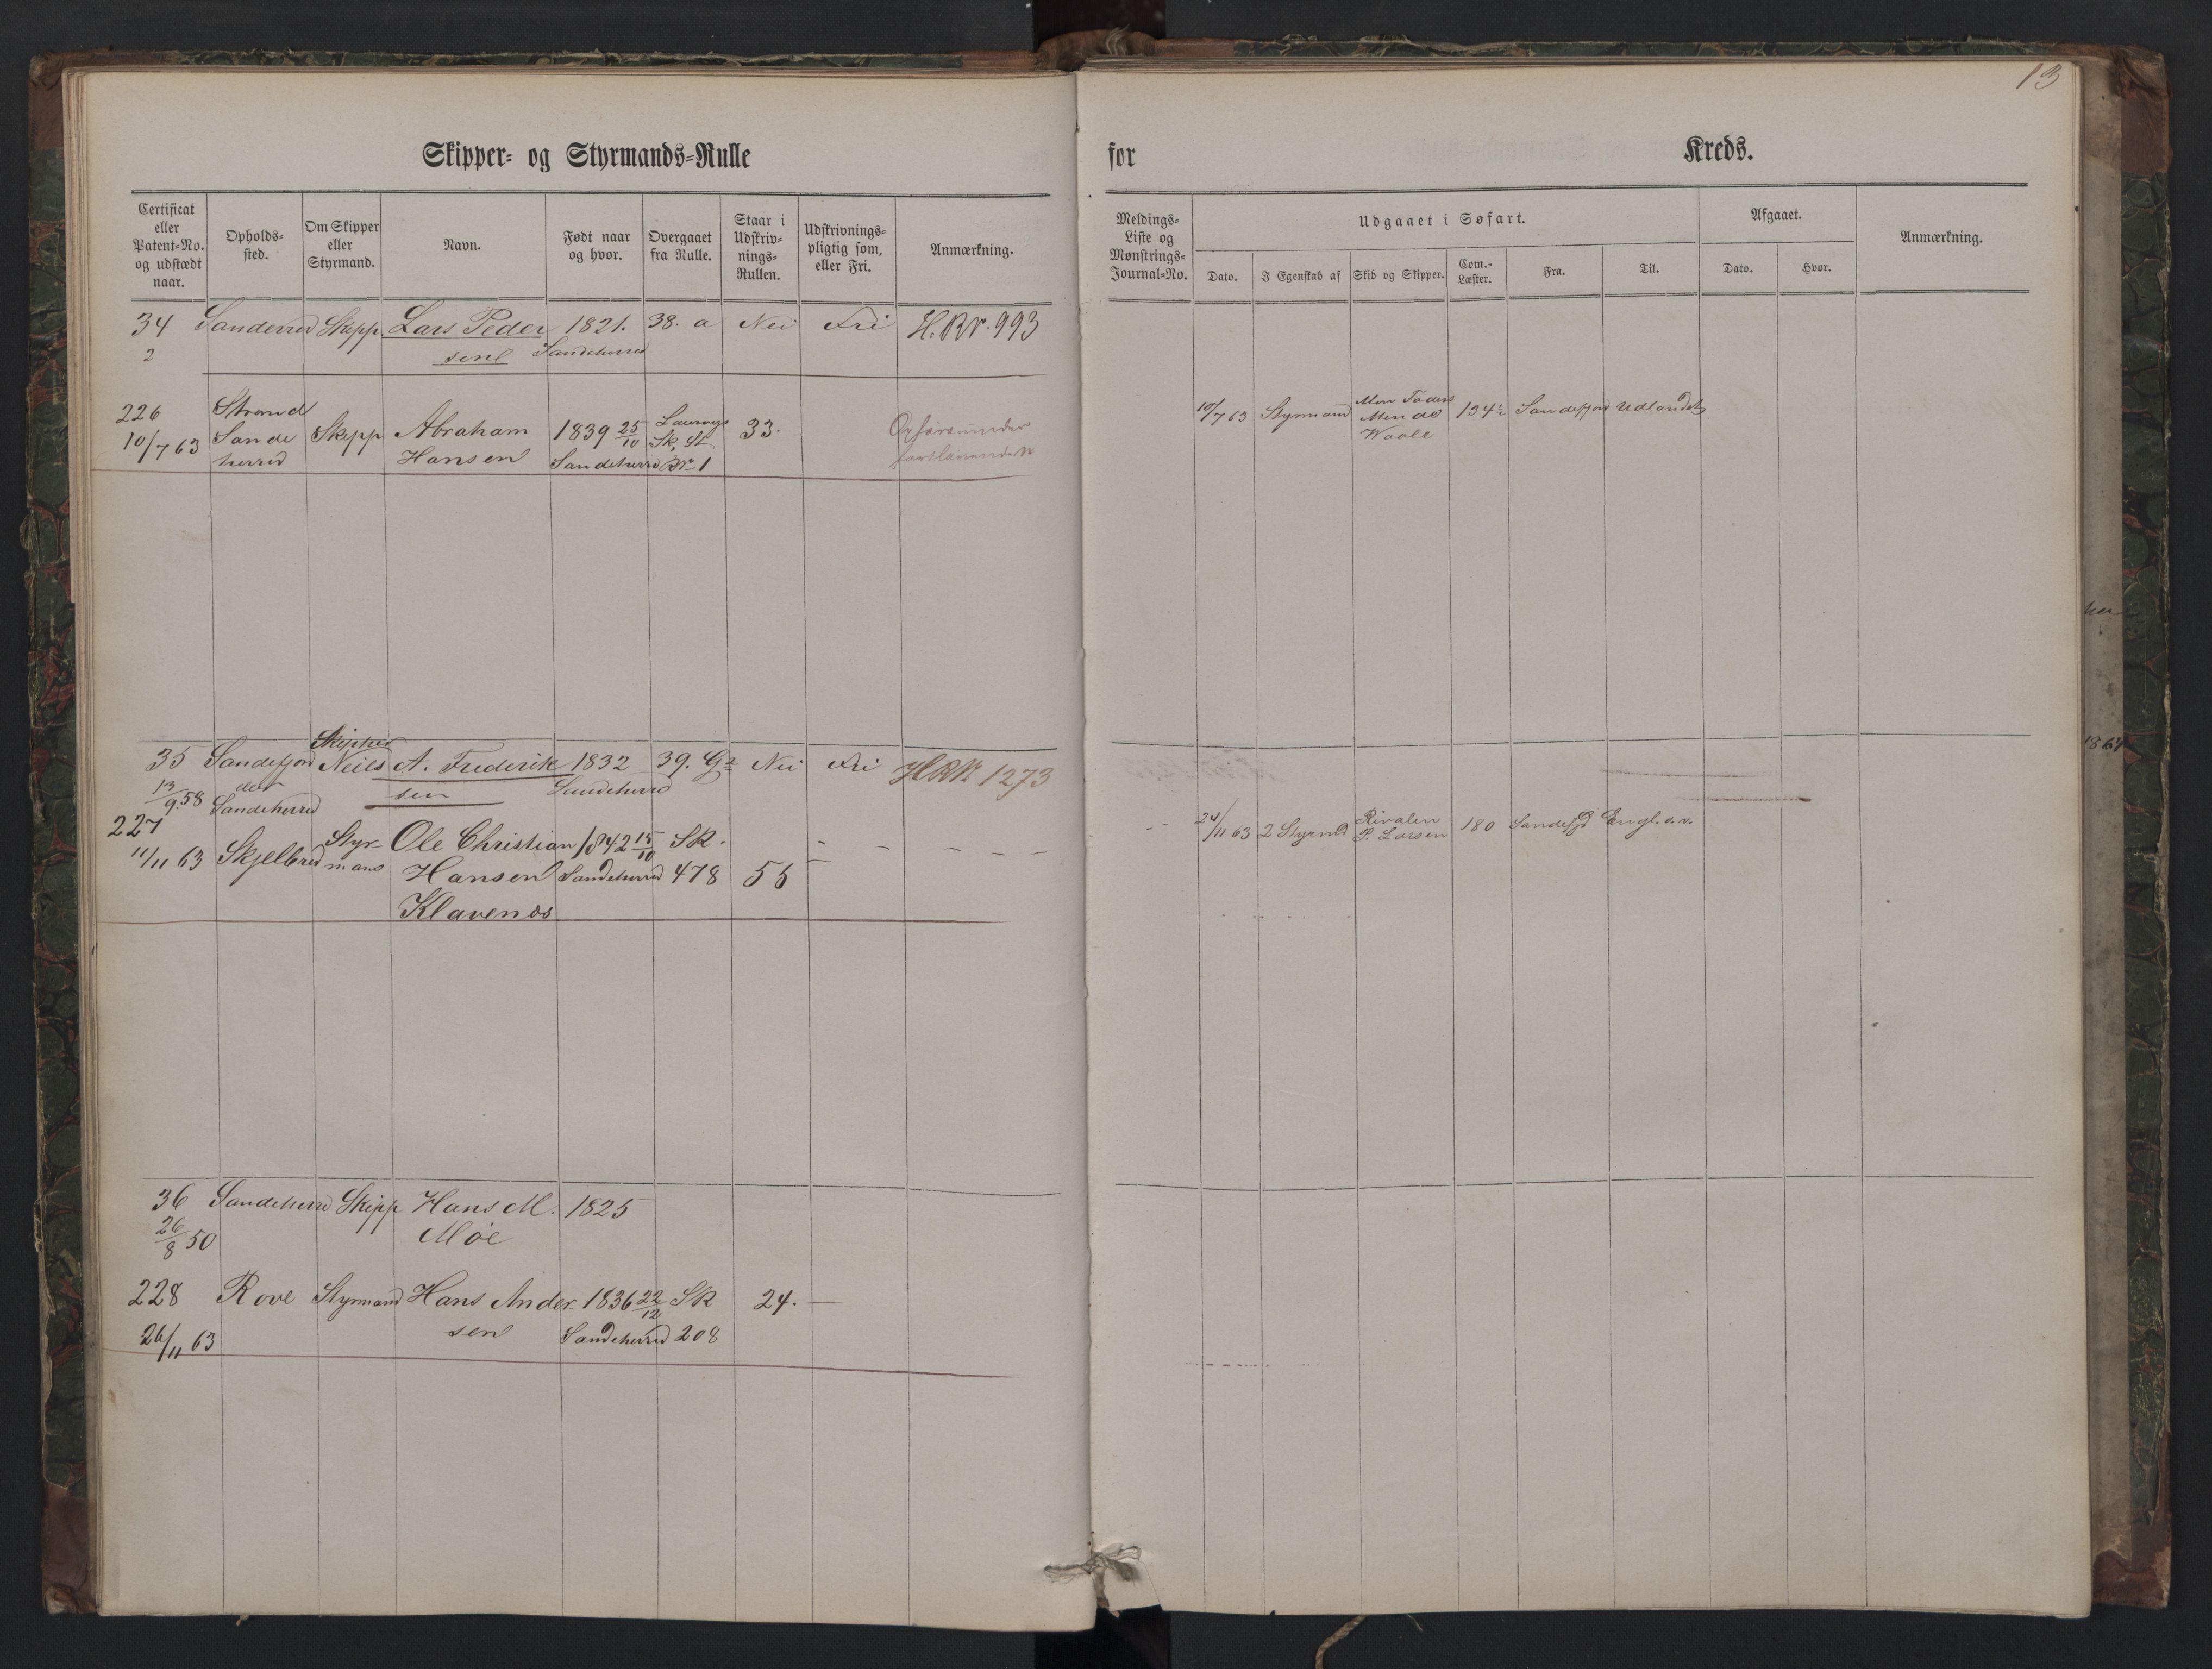 13
Skipper- og Styrmands-Rulle
for Kreds.
Certificat eller Patent-No. og udstædt naar.
Opholds-sted.
Om Skipper eller Styrmand.
Navn.
Født naar og hvor.
Overgaaet fra Rulle.
Staar i Udskriv-nings-Rullen.
Udskrivnings-pligtig som, eller Fri.
Anmærkning.
Meldings-Liste og Mønstrings-Journal-No.
Udgaaet i Søfart.
Dato.
I Egenskab af
Skib og Skipper.
Com.-Læster.
Fra.
Til.
Afgaaet.
Dato.
Hvor.
Anmærkning.
34 Sanderred Skipp Lars Peder 1821. 38. a Nei Fri H.RN. 993
2 sen Sandeherred
226 Strand
10/7 63 Sande Skipp Abraham 1839 25/10 Laurvigs Sk. St. 33.
herred Hansen Sandeherred No 1
10/7 63 Styrmand Mendo 134½ Sandefjord Udlandet
Waale
Skipper
35 Sandefjord Neils A. Frederik 1832 39. Nei Fri HRN 1273
13/9.58 Sandeherred sen Sandeherred
227 Styr- Ole Christian 1842 15/10 SR.
11/11 63 Skjelbred mans Hansen Sandeherred 478 55
Klavenæs
24/11 63 2 Styrmd Rivalen 180 Sandefjd Engl.
P. Larsen
36 Sandeherred Skipp Hans M. 1825
26/8 50 Møe
228 Rove Styrmand Hans Ander- 1836 22/12 SR 24.
26/11 63 sen Sandeherred 208
1864